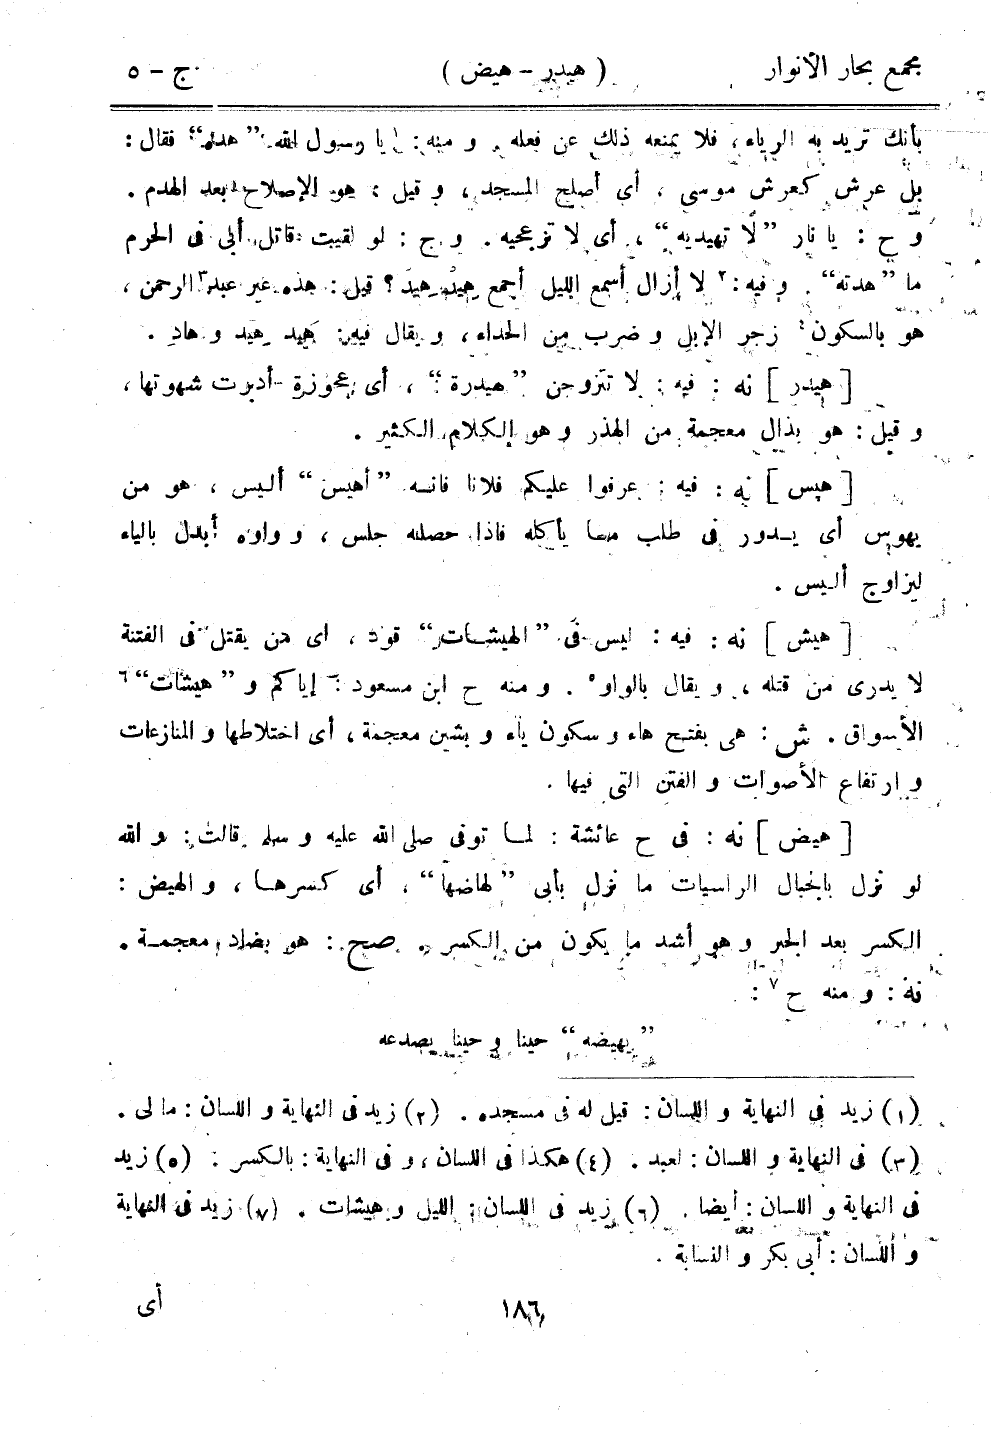 مجمع بحار الأنوار ( هيدر - هيض ) ج - ٥
بأنك تريد به الرياء، فلا يمنعه ذلك عن فعله. و منه: ١ يا رسول الله: ”هدئه“ فقال :
بل عرش كعرش موسى ، أى أصلح المسجد ، و قيل : هو الإصلاح بعد الهدم .
و ح : يا نار ”لا تهيديه“ ، أى لا تزعجيه . و ج : لو لقيت قاتل أبى فى الحرم
ما ”هدته“ . و فيه :٢ لا أزال أسمع الليل أجمع هِيْدْ هِيْدْ ؟ قيل : هذه عير عبد٣ الرحمن ،
هو بالسكون٤ زجر الإبل و ضرب من الحداء ، و يقال فيه : هَيد هَيد و هادِ .
[ هيدر ] نه : فيه : لا تتزوجن ”هيدرة“ ، أى عجوزة أدبرت شهوتها ،
و قيل : هو بذال معجمة من الهذر و هو الكلام الكثير .
[ هيس ] نه : فيه : عرفوا عليكم فلانا فانه ”أهيس“ أليس ، هو من
يهوس أى يدور فى طلب ما يأكله فاذا حصله جلس ، و واوه أبدل بالياء
ليزاوج أليس .
[ هيش ] نه : فيه : ليس فى ”الهيشات“ قود ، اى من يقتل فى الفتنة
لا يدرى من قتله ، و يقال بالواو٥ . و منه ح ابن مسعود : إياكم و ”هيشات“٦
الأسواق . ش : هى بفتح هاء و سكون ياء و بشين معجمة ، أى اختلاطها و المنازعات
و ارتفاع الأصوات و الفتن التى فيها .
[ هيض ] نه : فى ح عائشة : لما توفى صلى الله عليه و سلم قالت : و الله
لو نزل بالجبال الراسيات ما نزل بأبى ”لهاضها“ ، أى كسرها ، و الهيض :
الكسر بعد الجبر و هو أشد ما يكون من الكسر . صح : هو بضاد معجمة .
نه : و منه ح٧ :
”يهيضه“ حينا و حينا يصدعه
(١) زيد فى النهاية و اللسان : قيل له فى مسجده . (٢) زيد فى النهاية و اللسان : ما لى .
(٣) فى النهاية و اللسان : لعبد . (٤) هكذا فى اللسان ، و فى النهاية : بالكسر : (٥) زيد
فى النهاية و اللسان : أيضا . (٦) زيد فى اللسان : الليل و هيشات . (٧) زيد فى النهاية
و اللسان : أبى بكر و النسابة .
١٨٦ أى